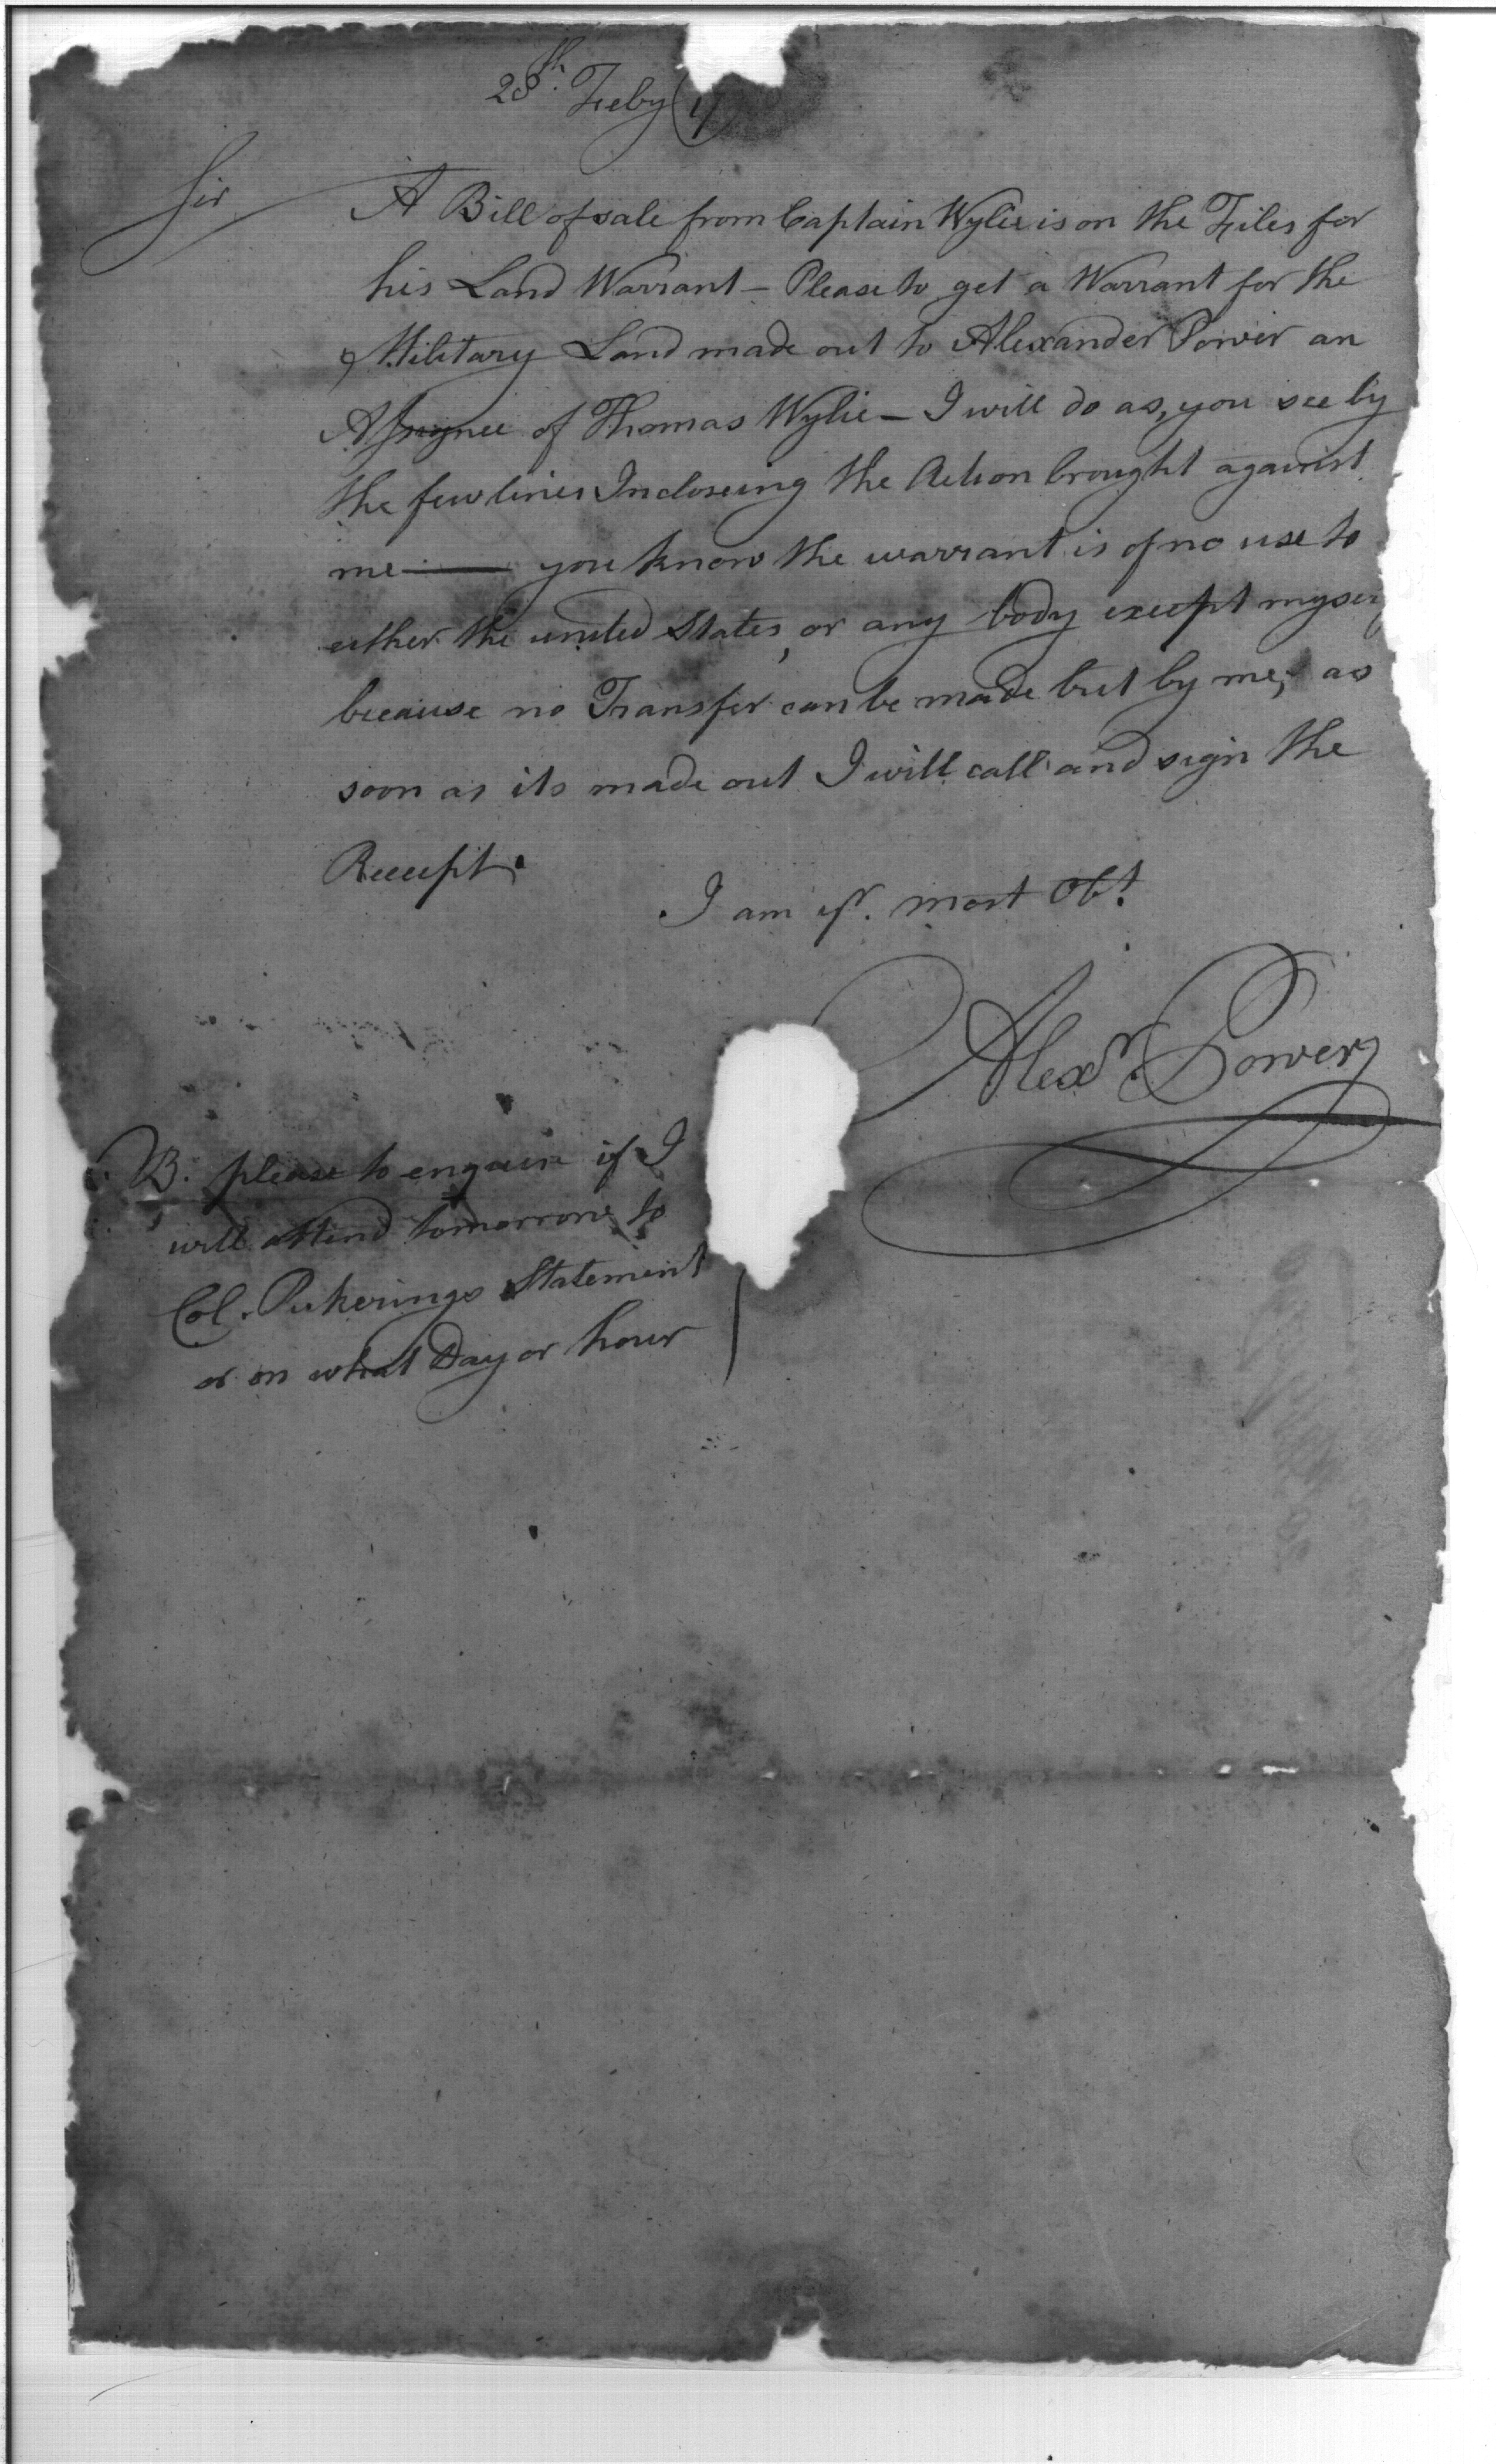 28th. Feby
Sir
A Bill of sale from Captain Wylie is on the Files for
his Land Warrant — Please to get a Warrant for the
Military Land made out to Alexander Power an
Assignee of Thomas Wylie — I will do as, you see by
the few lines Incloseing the Action brought against
me —— you know the warrant is of no use to
either the united States, or any body except
because no Transfer can be made but by me, as
soon as its made out I will call and sign the
Receipt.
I am yr. most Obt.
Alexr. Power
B. please to enquire if I
will attend tomorrow to
Col. Pickerings Statement
or on what Day or hour